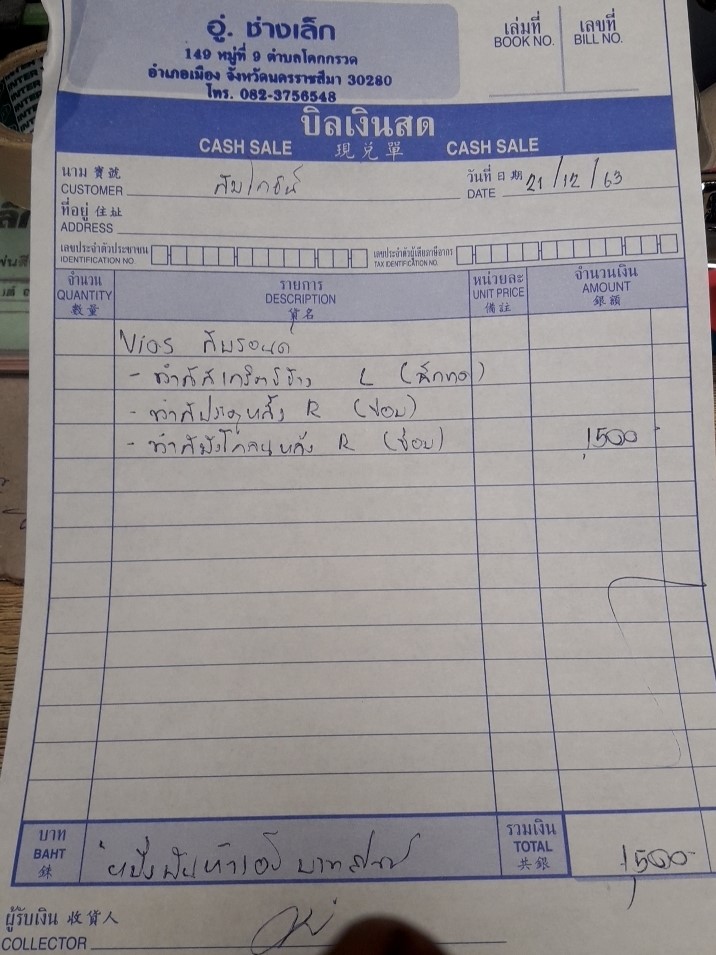 อู่. ช่างเล็ก
149 หมู่ที่ 9 ตำบลโคกกรวด
อำเภอเมือง จังหวัดนครราชสีมา 30280
โทร. 082-3756548
เล่มที่ เลขที่
BOOK NO. BILL NO.
บิลเงินสด
CASH SALE 現兌單 CASH SALE
นาม 寶號
CUSTOMER
วันที่ 日期 21/12/63
DATE
ที่อยู่ 住址
ADDRESS
เลขประจำตัวประชาชน
IDENTIFICATION NO.
เลขประจำตัวผู้เสียภาษีอากร
TAX IDENTIFICATION NO.
จำนวน รายการ หน่วยละ จำนวนเงิน
QUANTITY DESCRIPTION UNIT PRICE AMOUNT
數量 貨名 備註 銀額
Vios
- ทำสี L
- ทำสีประตูหลัง R (ซ่อม)
- ทำสีบังโคลนหลัง R (ซ่อม) 1,500
บาท รวมเงิน
BAHT หนึ่งพันห้าร้อยบาทถ้วน TOTAL 1,500
銖 共銀
ผู้รับเงิน 收貨人
COLLECTOR